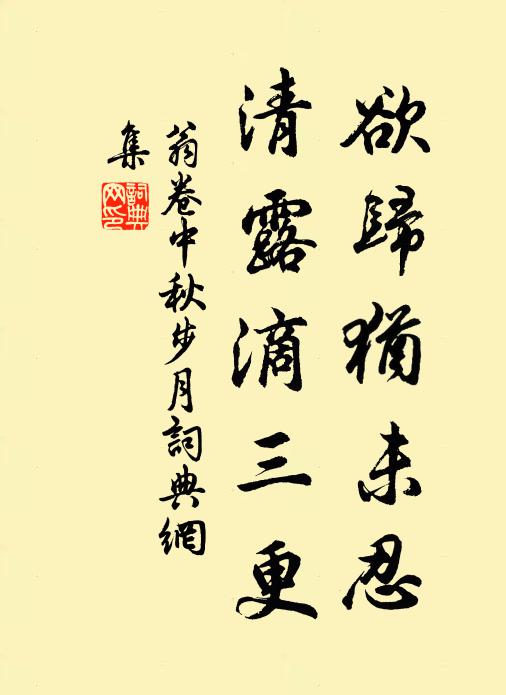 欲歸猶未忍
清露滴三更
翁卷中秋步月詞典網
集
詞典
网印